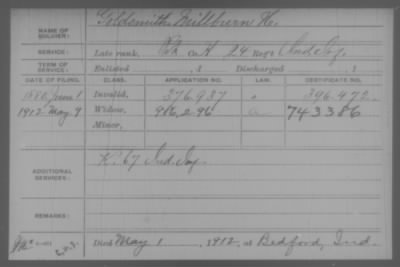 NAME OF SOLDIER: Goldsmith, Millburn H.
SERVICE: Late rank, Pvt Co. H 24 Reg't Ind. Inf.
TERM OF SERVICE: Enlisted , 1 Discharged , 1
DATE OF FILING. CLASS. APPLICATION NO. LAW. CERTIFICATE NO.
1880 June 1 Invalid, 376.937 396.472.
1912 May 9 Widow, 986.296 743386
Minor,
ADDITIONAL SERVICES: K. 67 Ind Inf.
REMARKS:
Died May 1, 1912, at Bedford, Ind.